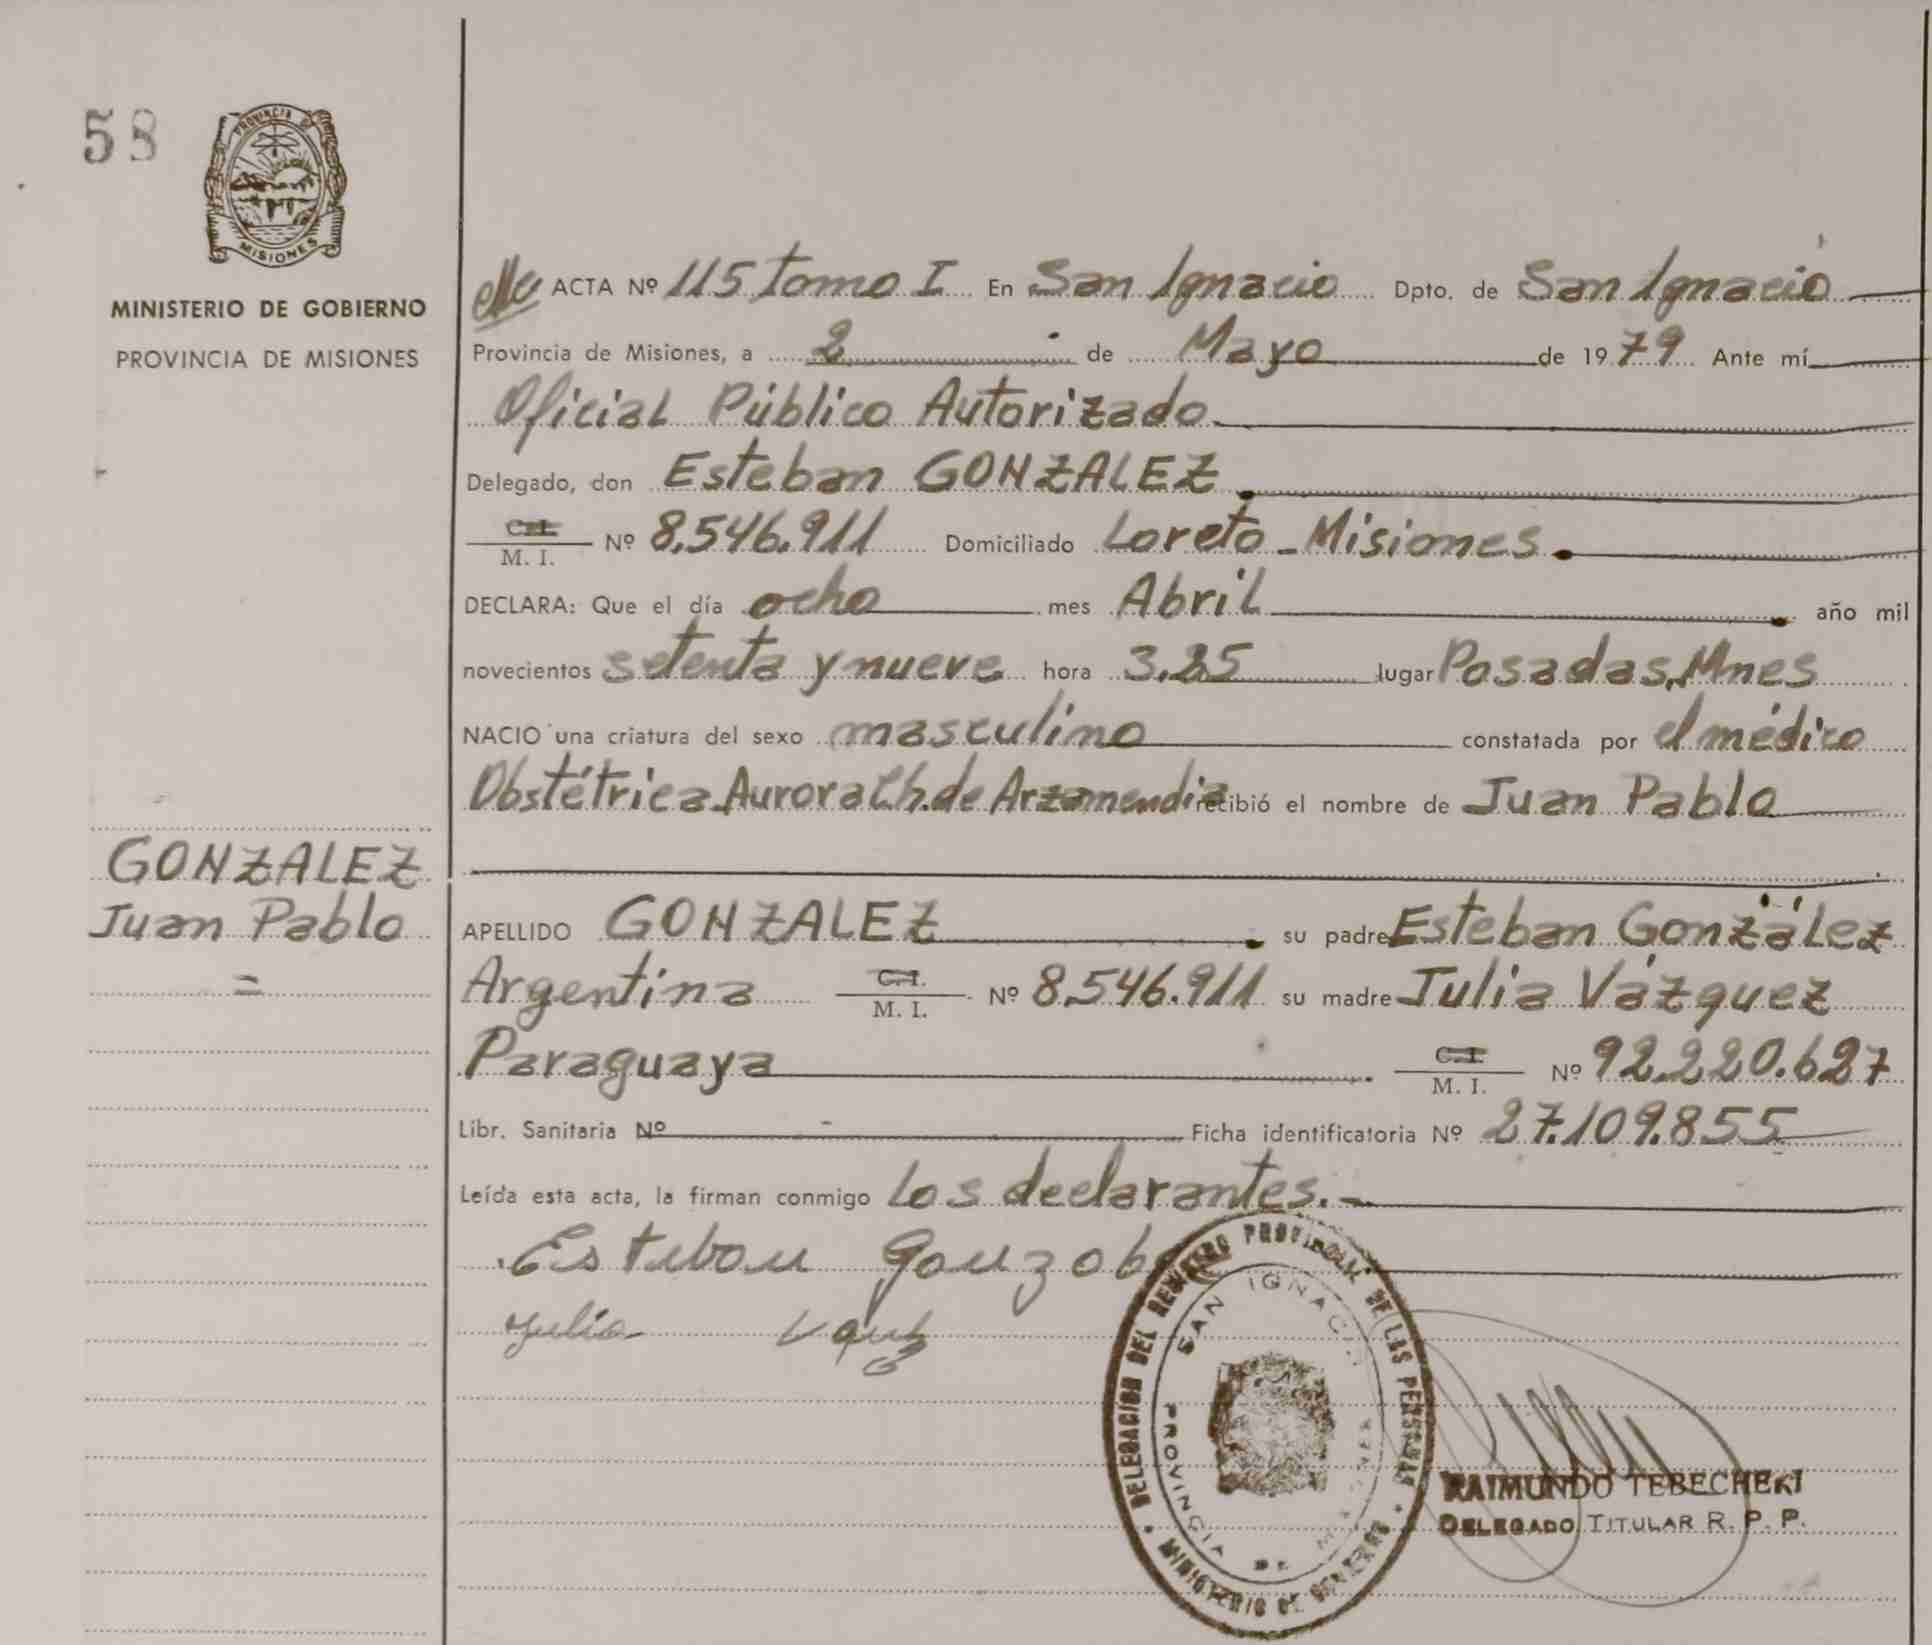 58
PROVINCIA DE
MISIONES
MINISTERIO DE GOBIERNO
PROVINCIA DE MISIONES
ACTA Nº 115 Tomo I En San Ignacio Dpto. de San Ignacio
Provincia de Misiones, a 2 de Mayo de 1979 Ante mí
Oficial Público Autorizado.
Delegado, don Esteban GONZALEZ.
C.I. M. I. Nº 8.546.911 Domiciliado Loreto - Misiones.
DECLARA: Que el día ocho mes Abril año mil
novecientos setenta y nueve hora 3.25 lugar Posadas, Mnes
NACIO una criatura del sexo masculino constatada por el médico
Obstétrica Aurora Ch. de Arzamendia recibió el nombre de Juan Pablo
GONZALEZ
Juan Pablo
=
APELLIDO GONZALEZ su padre Esteban González
Argentina C.I. M. I. Nº 8.546.911 su madre Julia Vázquez
Paraguaya C.I. M. I. Nº 92.220.627
Libr. Sanitaria Nº - Ficha identificatoria Nº 27.109.855
Leída esta acta, la firman conmigo los declarantes.-
Esteban
Julia
DELEGACION DEL REGISTRO PROVINCIAL DE LAS PERSONAS
SAN IGNACIO
PROVINCIA DE MISIONES
MINISTERIO DE GOBIERNO
RAIMUNDO TEBECHEKI
DELEGADO TITULAR R. P. P.